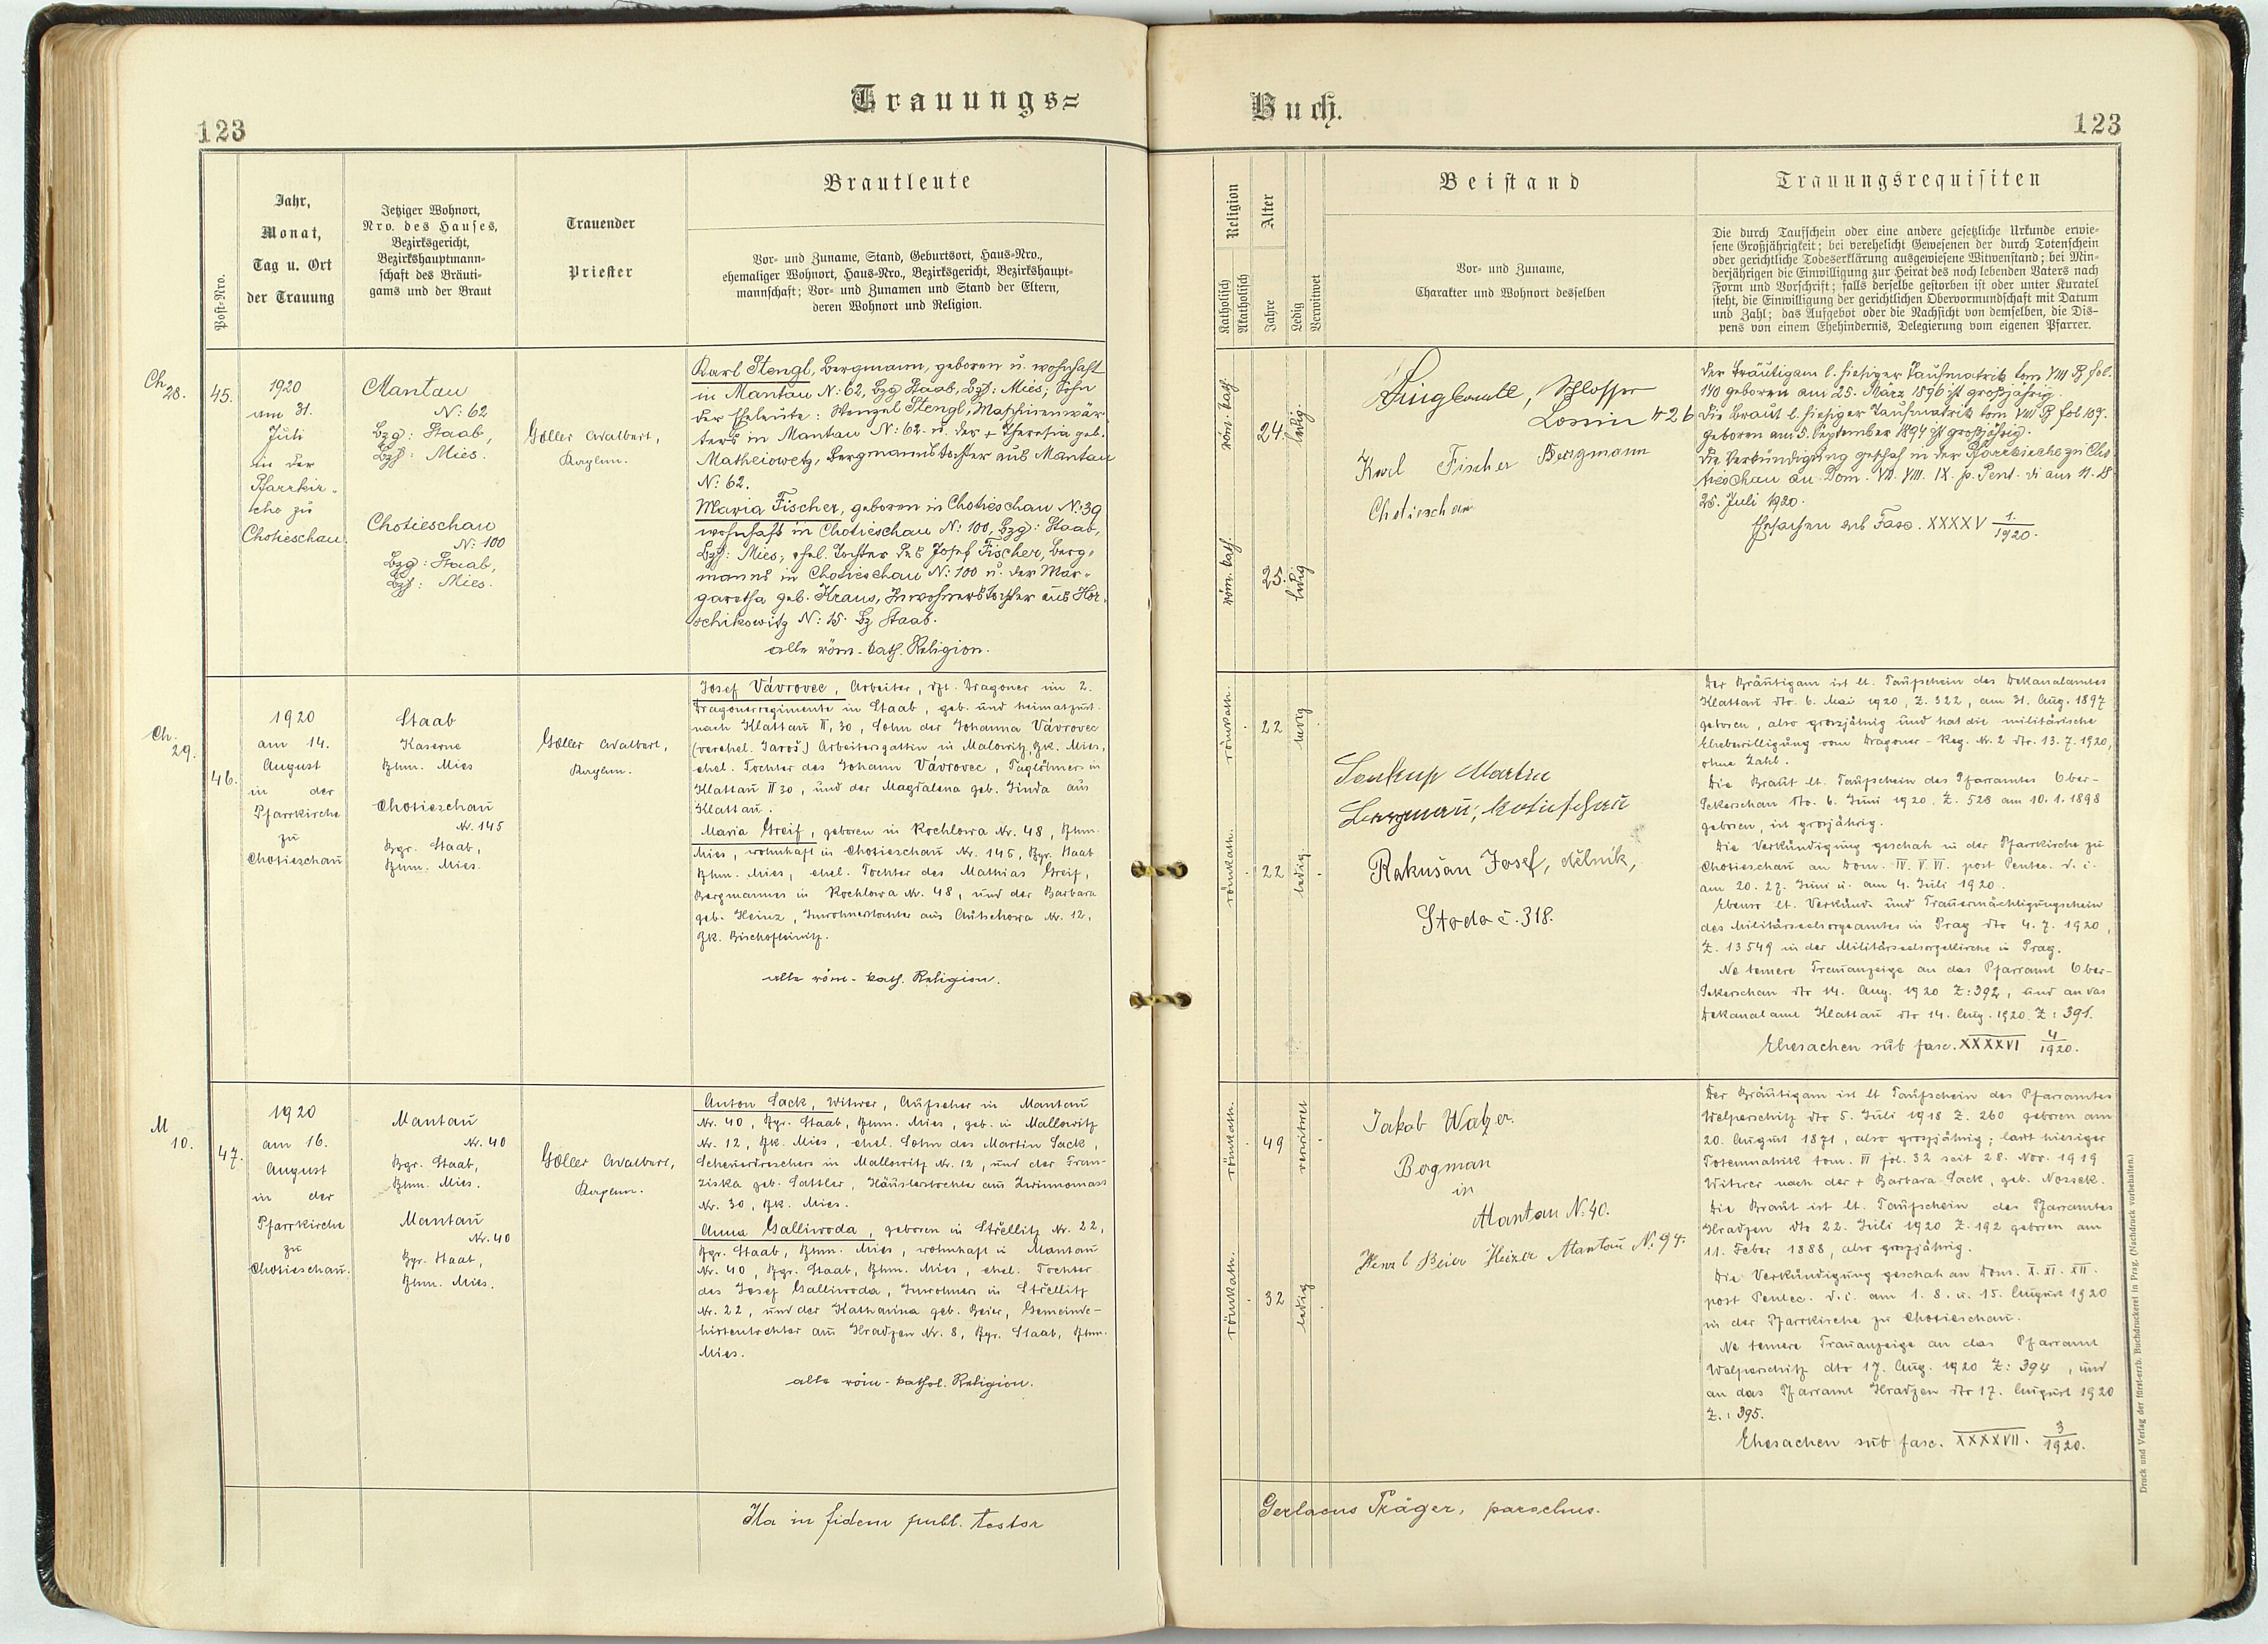 Trauungs=
123
Post-Nro.
Jahr,
Monat,
Tag u. Ort
der Trauung
Jetziger Wohnort,
Nro. des Hauses,
Bezirksgericht,
Bezirkshauptmann-
schaft des Bräuti-
gams und der Braut
Trauender
Priester
Brautleute
Vor- und Zuname, Stand, Geburtsort, Haus-Nro.,
ehemaliger Wohnort, Haus-Nro., Bezirksgericht, Bezirkshaupt-
mannschaft; Vor- und Zunamen und Stand der Eltern,
deren Wohnort und Religion.
Ch
28.
45.
1920
am 31.
Juli
in der
Pfarrkir-
che zu
Chotieschau.
Mantau
N: 62
Bzg: Staab,
Bzh: Mies.
Chotieschau
N: 100
Bzg: Staab,
Bzh: Mies.
Göller Adalbert,
Kaplan.
Karl Stengl, Bergmann, geboren u. wohnhaft
in Mantau N: 62, Bzg Staab, Bzh: Mies; Sohn
der Eheleute: Wenzel Stengl, Maschinenwär-
ters in Mantau N: 62 u. der + Theresia geb.
Matheiowetz, Bergmannstochter aus Mantau
N: 62.
Maria Fischer, geboren in Chotieschau N: 39
wohnhaft in Chotieschau N: 100, Bzg: Staab,
Bzh: Mies; ehel. Tochter des Josef Fischer, Berg-
manns in Chotieschau N: 100 u. der Mar-
garetha geb. Kraus, Inwohnerstochter aus Hor-
schikowitz N: 15. Bz Staab.
alle röm.-kath. Religion.
Ch.
29.
46.
1920
am 14.
August
in der
Pfarrkirche
zu
Chotieschau
Staab
Kaserne
Bhm. Mies
Chotieschau
Nr. 145
Bgr. Staab,
Bhm. Mies.
Göller Adalbert,
Kaplan.
Josef Vávrovec, Arbeiter, dzt. Dragoner im 2.
Dragonerregimente in Staab, geb. und heimatzust.
nach Klattau II, 30, Sohn der Johanna Vávrovec
(verehel. Jaroš) Arbeitersgattin in Malowitz, Bk. Mies,
ehel. Tochter des Johann Vávrovec, Taglöhners in
Klattau II 30, und der Magdalena geb. Jinda aus
Klattau.
Maria Greif, geboren in Rochlowa Nr. 48, Bhm.
Mies, wohnhaft in Chotieschau Nr. 145, Bgr. Staab
Bhm. Mies, ehel. Tochter des Mathias Greif,
Bergmannes in Rochlowa Nr. 48, und der Barbara
geb. Heinz, Inwohnerstochter aus Nr. 12,
Bk. Bischofteinitz.
alle röm.-kath. Religion.
M
10.
47.
1920
am 16.
August
in der
Pfarrkirche
zu
Chotieschau.
Mantau
Nr. 40
Bgr. Staab,
Bhm. Mies.
Mantau
Nr. 40
Bgr. Staab,
Bhm. Mies.
Göller Adalbert,
Kaplan.
Anton Sack, Witwer, Aufseher in Mantau
Nr. 40, Bgr. Staab, Bhm. Mies, geb. in Mallowitz
Nr. 12, Bk. Mies, ehel. Sohn des Martin Sack,
Scheuerdreschers in Mallowitz Nr. 12, und der Fran-
ziska geb. Sattler, Häuslerstochter aus Zwinnomass
Nr. 30, Bk. Mies.
Anna Galliwoda, geboren in Střellitz Nr. 22,
Bgr. Staab, Bhm. Mies, wohnhaft in Mantau
Nr. 40, Bgr. Staab, Bhm. Mies, ehel. Tochter
des Josef Galliwoda, Inwohners in Střellitz
Nr. 22, und der Katharina geb. Beier, Gemeinde-
hirtentochter aus Hradzen Nr. 8, Bgr. Staab, Bhm.
Mies.
alle röm.-kathol. Religion.
Ita in fidem publ. testor
Buch.
123
Religion
Katholisch
Akatholisch
Alter
Jahre
Ledig
Verwitwet
Beistand
Vor- und Zuname,
Charakter und Wohnort desselben
Trauungsrequisiten
Die durch Taufschein oder eine andere gesetzliche Urkunde erwie-
sene Großjährigkeit; bei verehelicht Gewesenen der durch Totenschein
oder gerichtliche Todeserklärung ausgewiesene Witwenstand; bei Min-
derjährigen die Einwilligung zur Heirat des noch lebenden Vaters nach
Form und Vorschrift; falls derselbe gestorben ist oder unter Kuratel
steht, die Einwilligung der gerichtlichen Obervormundschaft mit Datum
und Zahl; das Aufgebot oder die Nachsicht von demselben, die Dis-
pens von einem Ehehindernis, Delegierung vom eigenen Pfarrer.
röm. kath.
24.
ledig.
röm. kath.
25.
ledig
Schlosser
Lossin # 26
Karl Fischer Bergmann
Chotieschau
Der Bräutigam l. hiesiger Taufmatrik tom VIII B fol.
140 geboren am 25. März 1896 ist großjährig.
Die Braut l. hiesiger Taufmatrik tom VIII B fol 109.
geboren am 5. September 1894 ist großjährig.
Die Verkündigung geschah in der Pfarrkirche zu Cho-
tieschau an Dom. VII. VIII. IX. p. Pent. di am 11. 18.
25. Juli 1920.
Ehesachen sub Fasc. XXXXV 1./1920.
römkath.
22
ledig
römkath.
22
ledig.
Soukup Martin
Bergmann, Kotieschau
Rakušan Josef, dělník,
Stoda č. 318.
Der Bräutigam ist lt. Taufschein des Dekanalamtes
Klattau dto. 6. Mai 1920, Z. 322, am 31. Aug. 1897
geboren, also grosjährig und hat die militärische
Ehebewilligung vom Dragoner-Reg. Nr. 2 dto. 13. 7. 1920,
ohne Zahl.
Die Braut lt. Taufschein des Pfarramtes Ober-
Sekerschan dto. 6. Juni 1920. Z. 528 am 10. 1. 1898
geboren, ist grosjährig.
Die Verkündigung geschah in der Pfarrkirche zu
Chotieschau an Dom. IV. V. VI. post Pentec. d. i.
am 20. 27. Juni u. am 4. Juli 1920.
Ebenso lt. Verkünd- und Trauermächtigungsschein
des Militärseelsorgeamtes in Prag dto 4. 7. 1920,
Z. 13549 in der Militärseelsorgekirche in Prag.
Ne temere Trauanzeige an das Pfarramt Ober-
Sekerschan dto 14. Aug. 1920 Z: 392, und an das
Dekanalamt Klattau dto 14. Aug. 1920. Z: 391.
Ehesachen sub fasc. XXXXVI 4/1920.
römkath.
49
verwitwet
römkath.
32
ledig
Jakob Walzer.
Bergman
in
Mantau N. 40.
Wenzl Beier Heizer Mantau N. 94.
Der Bräutigam ist lt Taufschein des Pfarramtes
Welperschitz dto 5. Juli 1918 Z. 260 geboren am
20. August 1871, also grosjährig; laut hiesiger
Totenmatrik tom. VI fol. 32 seit 28. Nov. 1919
Witwer nach der + Barbara Sack, geb. Nossek.
Die Braut ist lt. Taufschein des Pfarramtes
Hradzen dto 22. Juli 1920 Z. 192 geboren am
11. Feber 1888, also grosjährig.
Die Verkündigung geschah an Dom. X. XI. XII.
post Pentec. d. i. am 1. 8. u. 15. August 1920
in der Pfarrkirche zu Chotieschau.
Ne temere Trauanzeige an das Pfarramt
Welperschitz dto 17. Aug. 1920 Z: 394, und
an das Pfarramt Hradzen dto 17. August 1920
Z.: 395.
Ehesachen sub fasc. XXXXVII. 3/1920.
Gerlacus Präger, parochus.
Druck und Verlag der fürst-erzb. Buchdruckerei in Prag. (Nachdruck vorbehalten.)